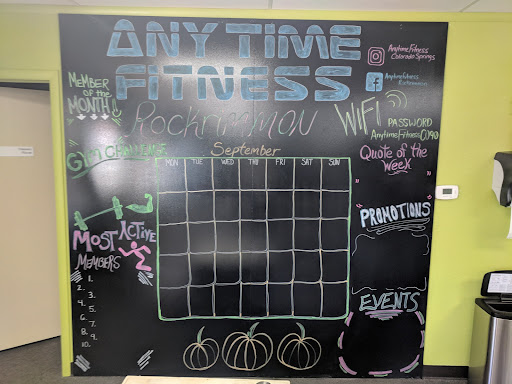 ANYTIME
FITNESS
Rockrimmon
Anytime Fitness
Colorado Springs
Anytime Fitness
Rockrimmon
MEMBER
of the
MONTH!
WiFi
PASSWORD
AnytimeFitness0190
GYM CHALLENGE
September
MON TUE WED THU FRI SAT SUN
Quote of the
Week
PROMOTIONS
MOST ACTIVE
MEMBERS
1.
2.
3.
4.
5.
6.
7.
8.
9.
10.
EVENTS